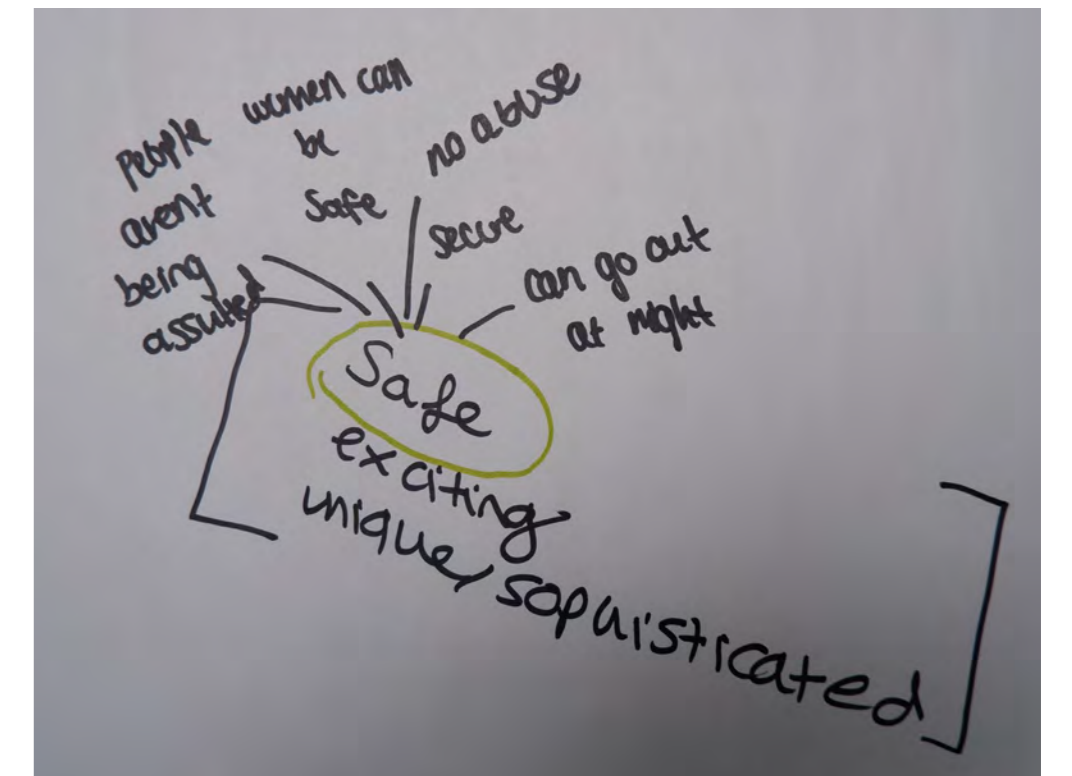 People
arent
being
assulted
women can
be
safe
no abuse
secure
can go out
at night
Safe
exciting
unique, sophisticated